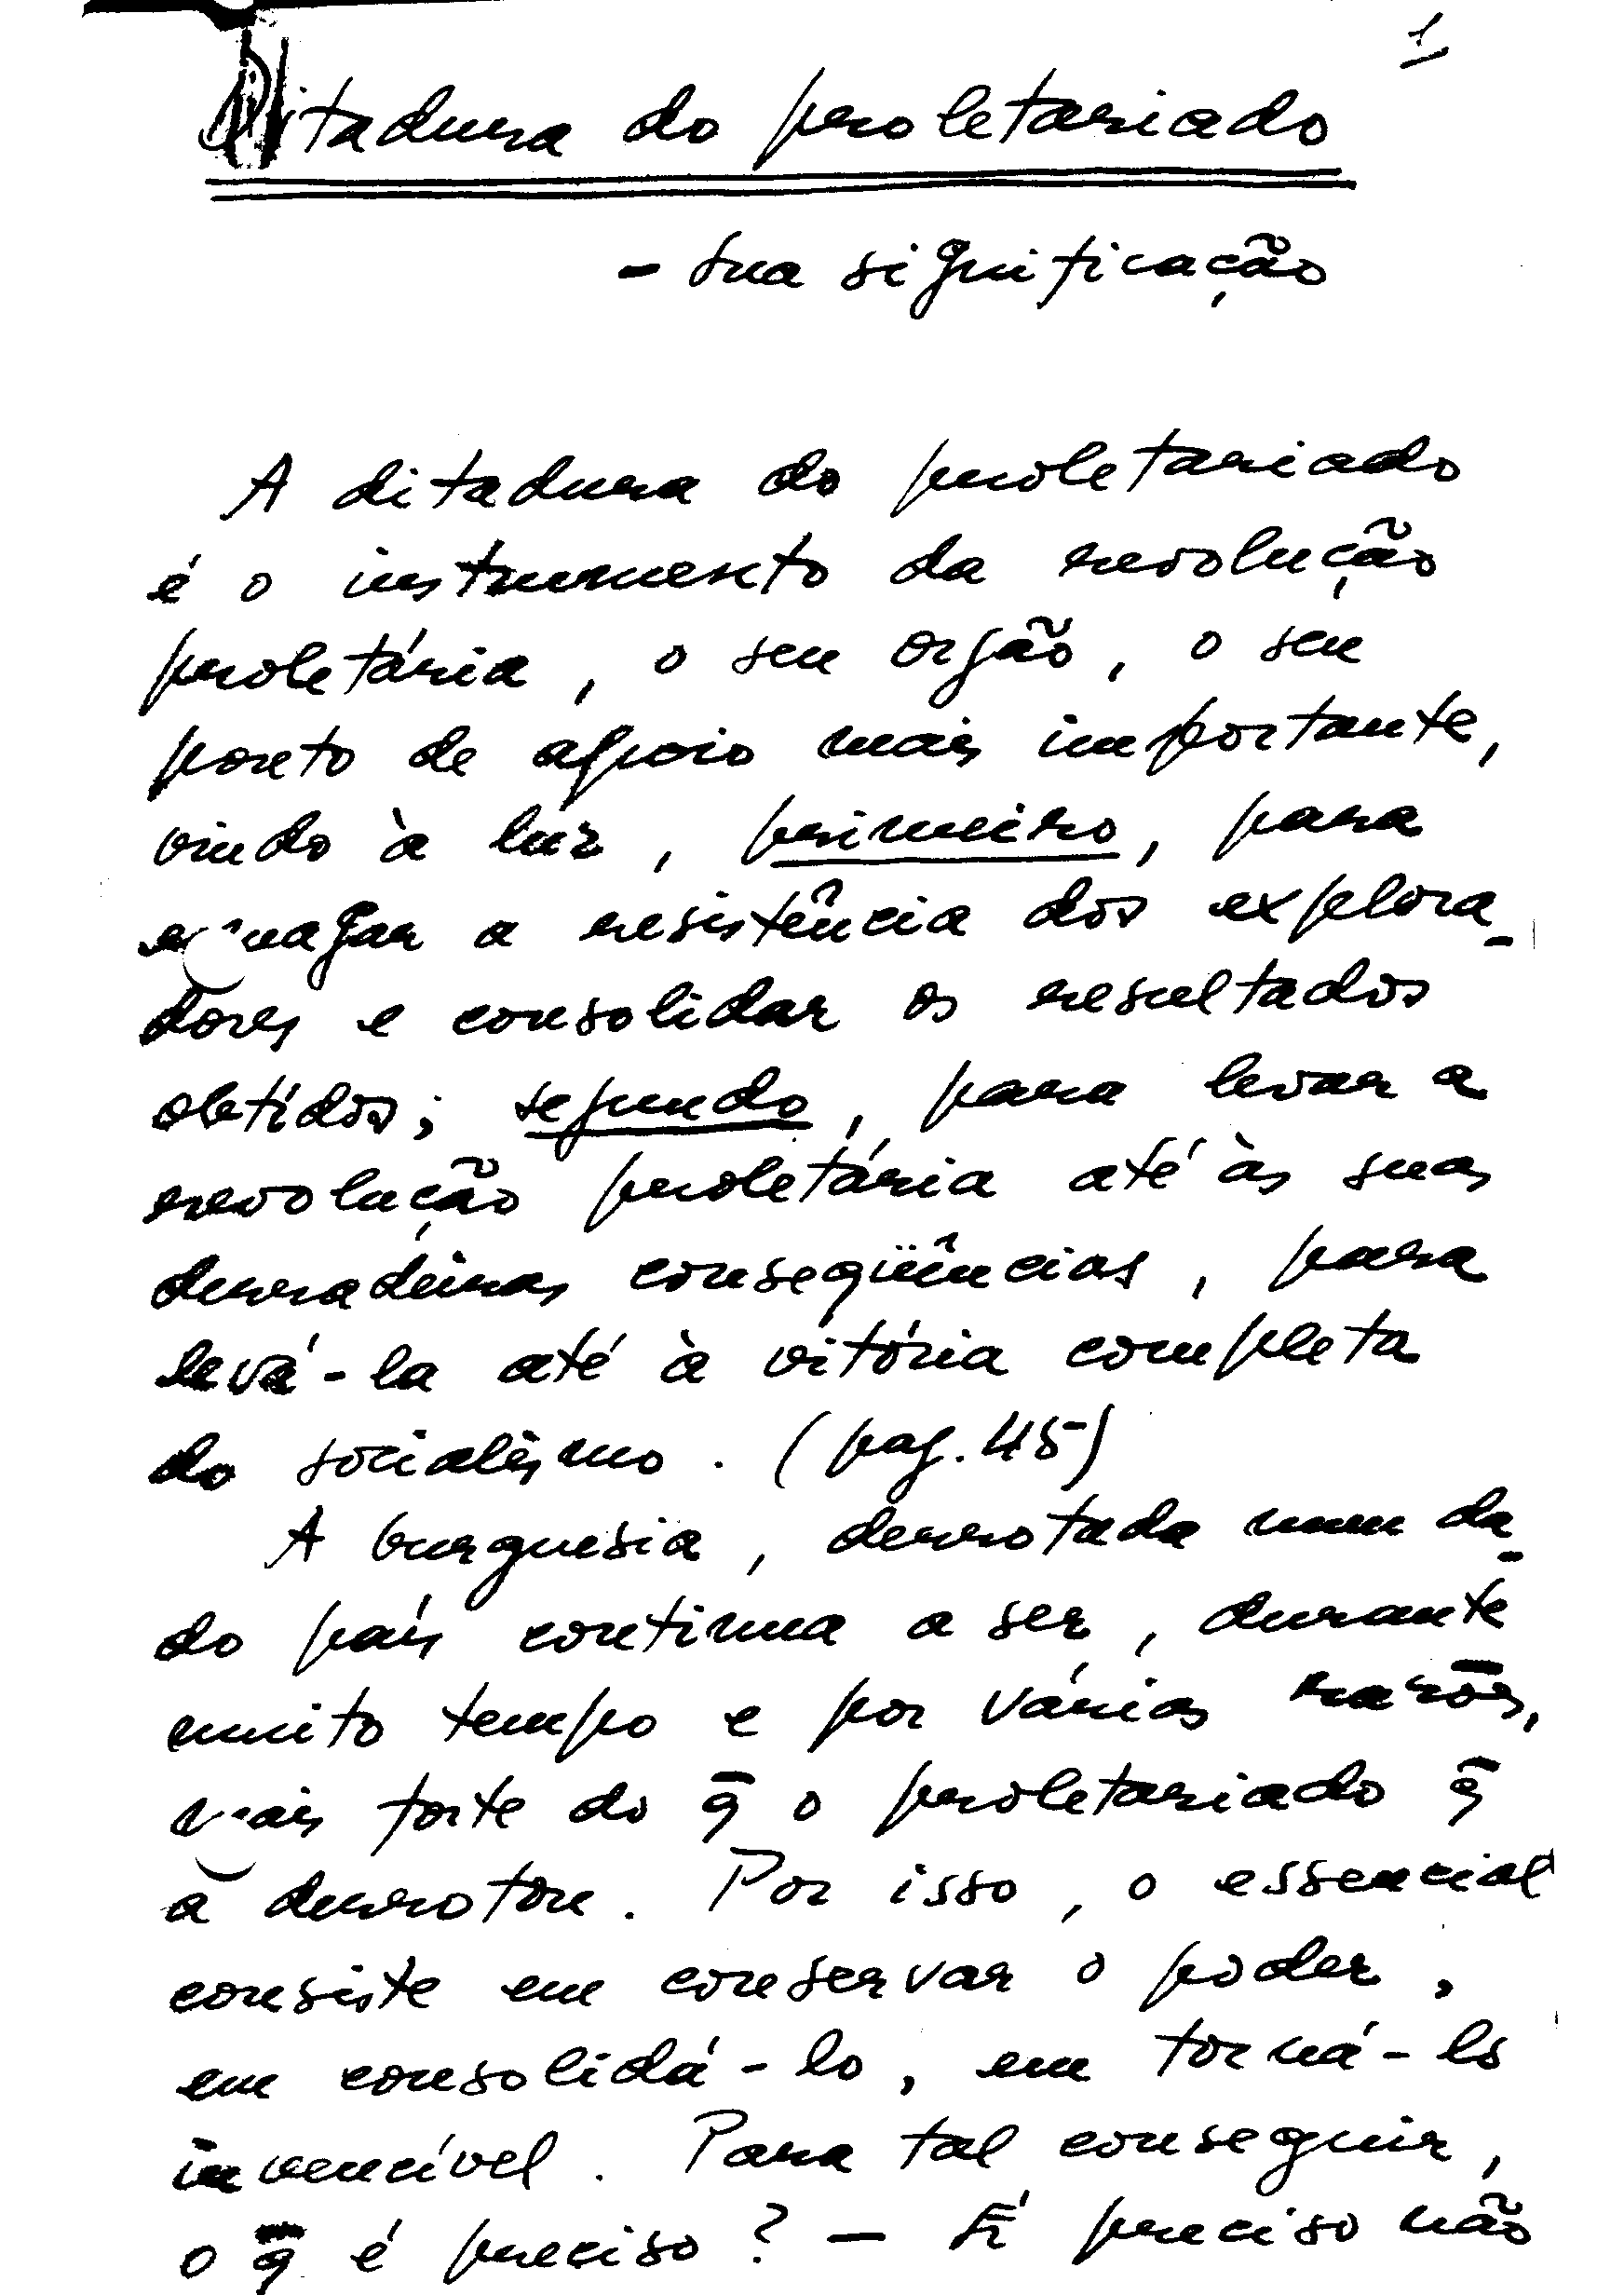 1
Ditadura do proletariado
- sua significação
A ditadura do proletariado
é o instrumento da revolução
proletária, o seu orgão, o seu
ponto de apoio mais importante,
vindo à luz, primeiro, para
esmagar a resistência dos explora-
dores e consolidar os resultados
obtidos; segundo, para levar a
revolução proletária até às suas
derradeiras conseqüências, para
levá-la até à vitória completa
do socialismo. (pag. 45)
A burguesia, derrotada num da-
do país continua a ser, durante
muito tempo e por várias razões,
mais forte do q̄ o proletariado q̄
a derrotou. Por isso, o essencial
consiste em conservar o poder,
em consolidá-lo, em torná-lo
invencível. Para tal conseguir,
o q̄ é preciso? — É preciso não